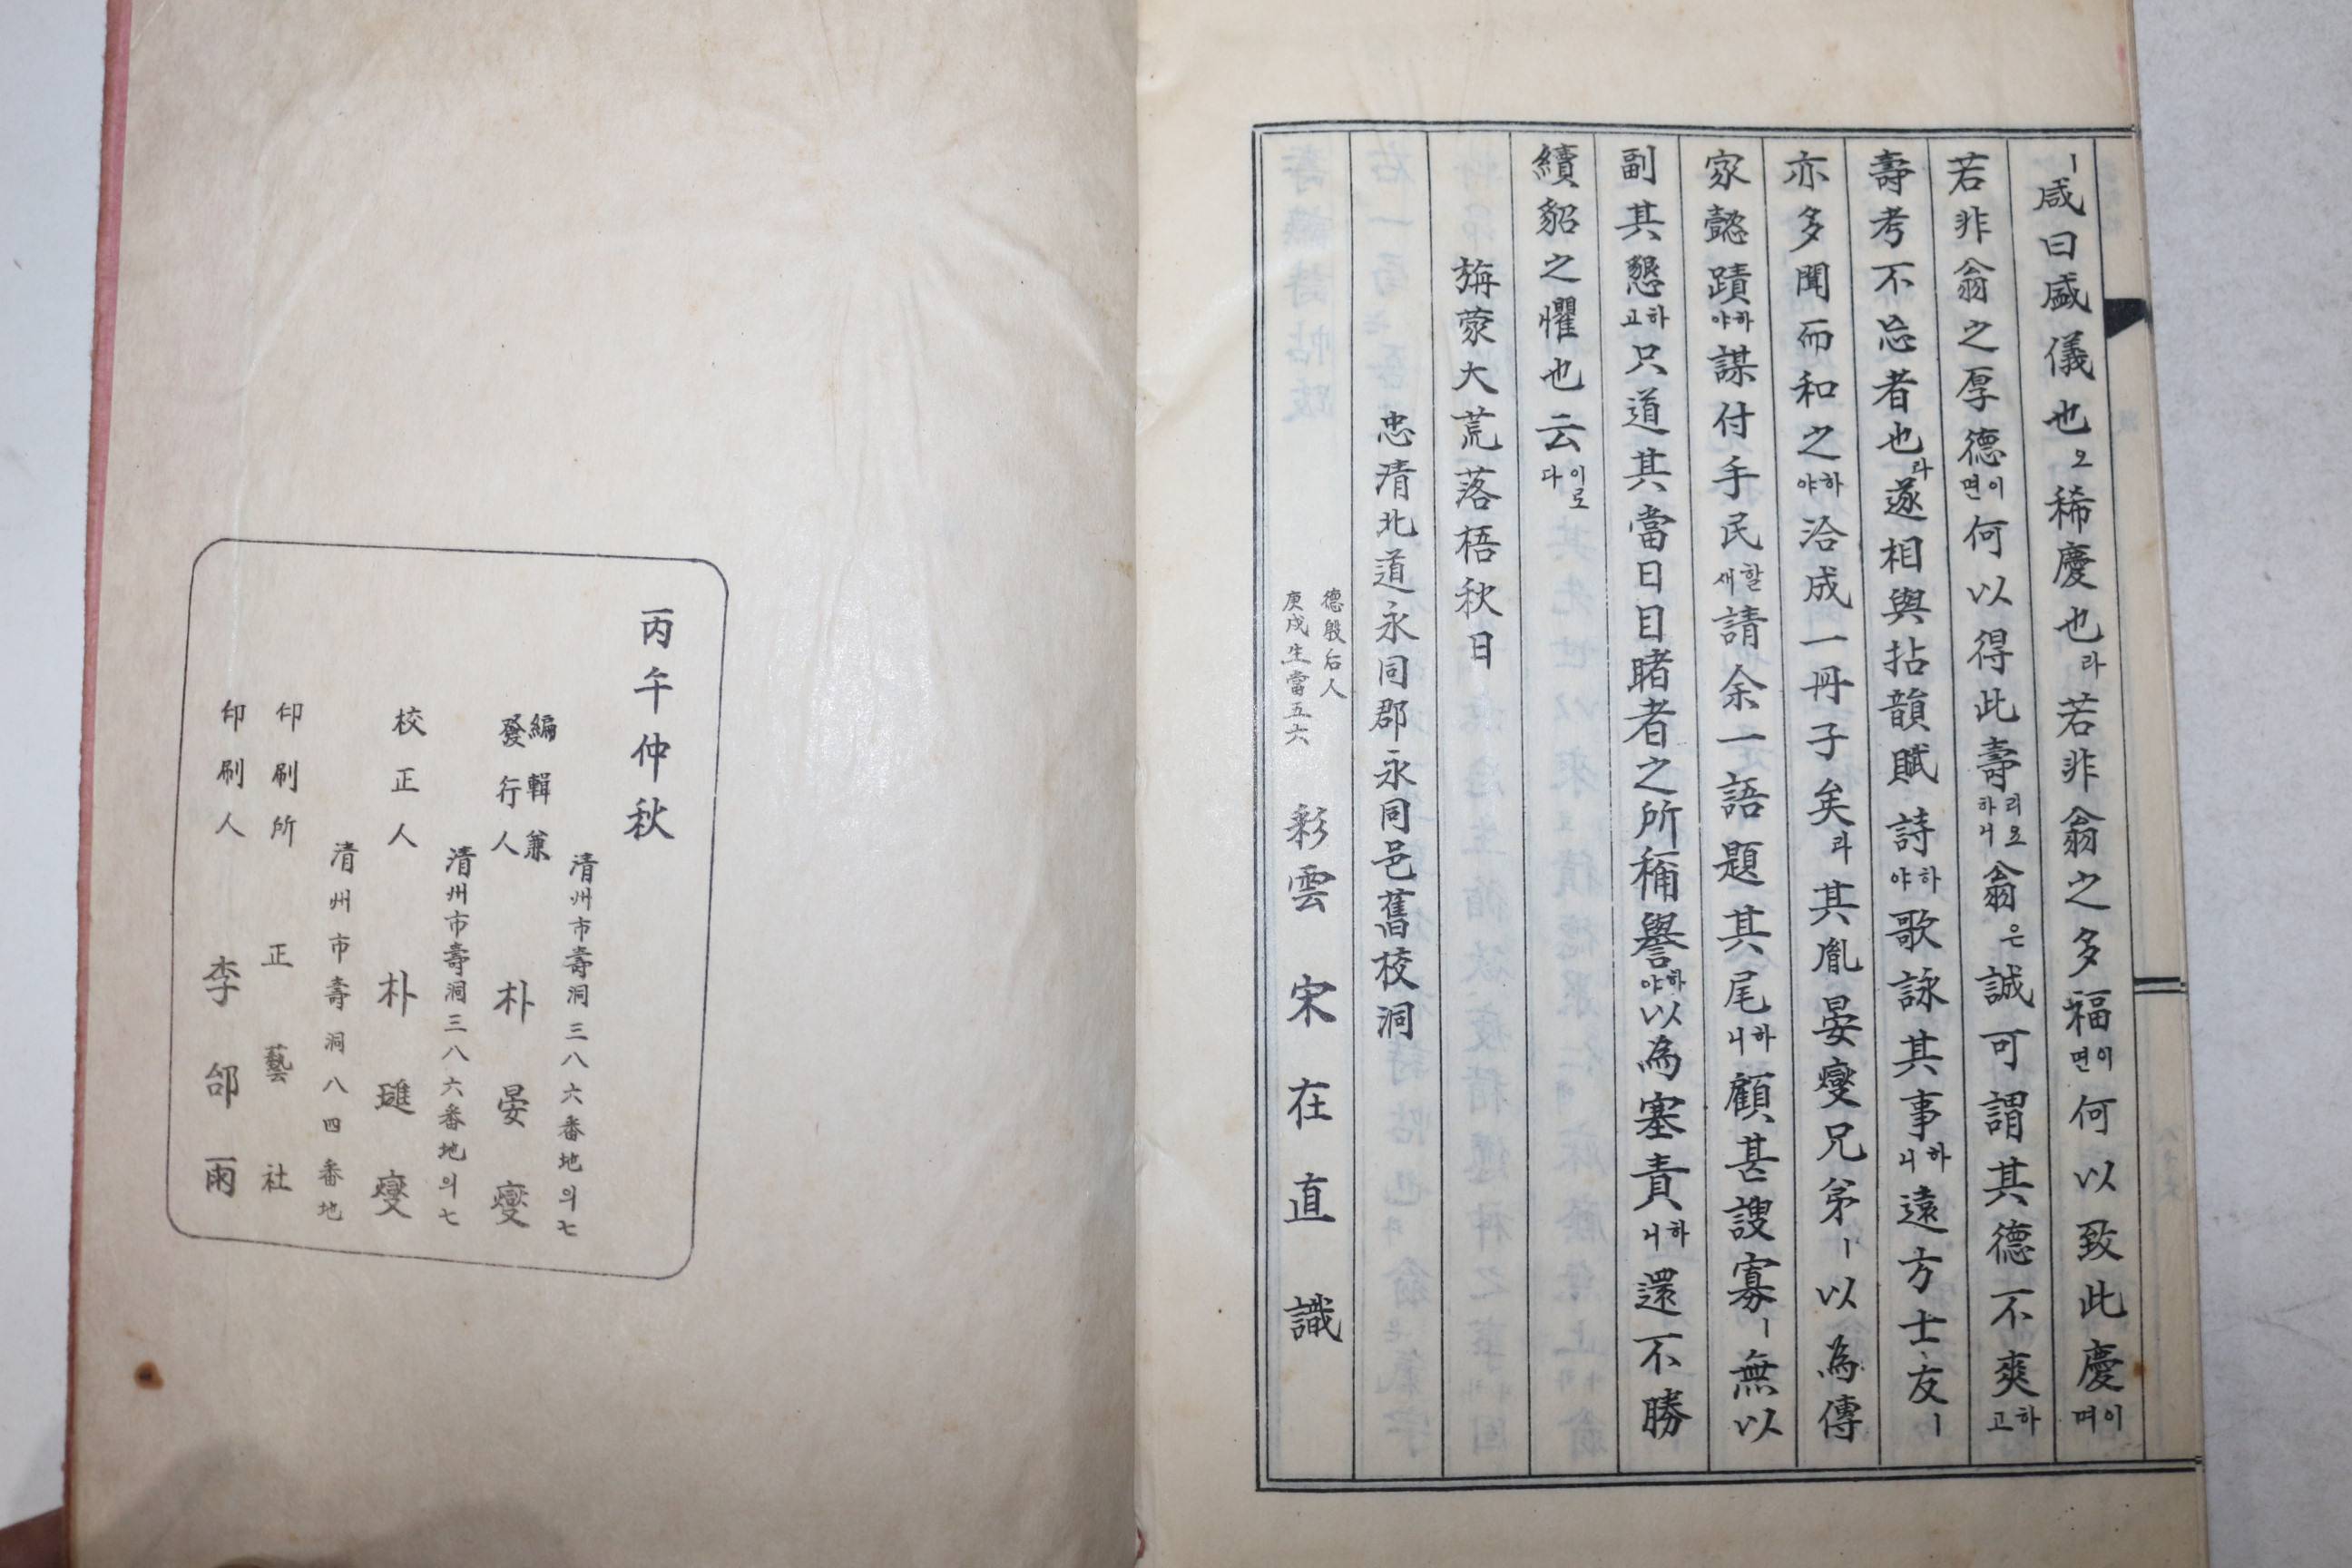 ㅣ咸曰盛儀也오稀慶也라若非翁之多福이면何以致此慶이며
若非翁之厚德이면何以得此壽리오하니翁은誠可謂其德不爽하고
壽考不忘者也라遂相與拈韻賦詩하야歌詠其事하니遠方士友ㅣ
亦多聞而和之하야洽成一冊子矣라其胤晏燮兄弟ㅣ以為傳
家懿蹟하야謀付手民할새請余一語題其尾하니顧甚謏寡ㅣ無以
副其懇하고只道其當日目睹者之所稱譽하야以為塞責하니還不勝
續貂之懼也云이로다
旃蒙大荒落梧秋日
忠清北道永同郡永同邑舊校洞
德殷后人
庚戌生當五六
彩雲 宋在直 識
丙午仲秋
清州市壽洞三八六番地의七
編輯兼
發行人 朴晏燮
清州市壽洞三八六番地의七
校正人 朴璡燮
清州市壽洞八四番地
印刷所 正藝社
印刷人 李郃雨